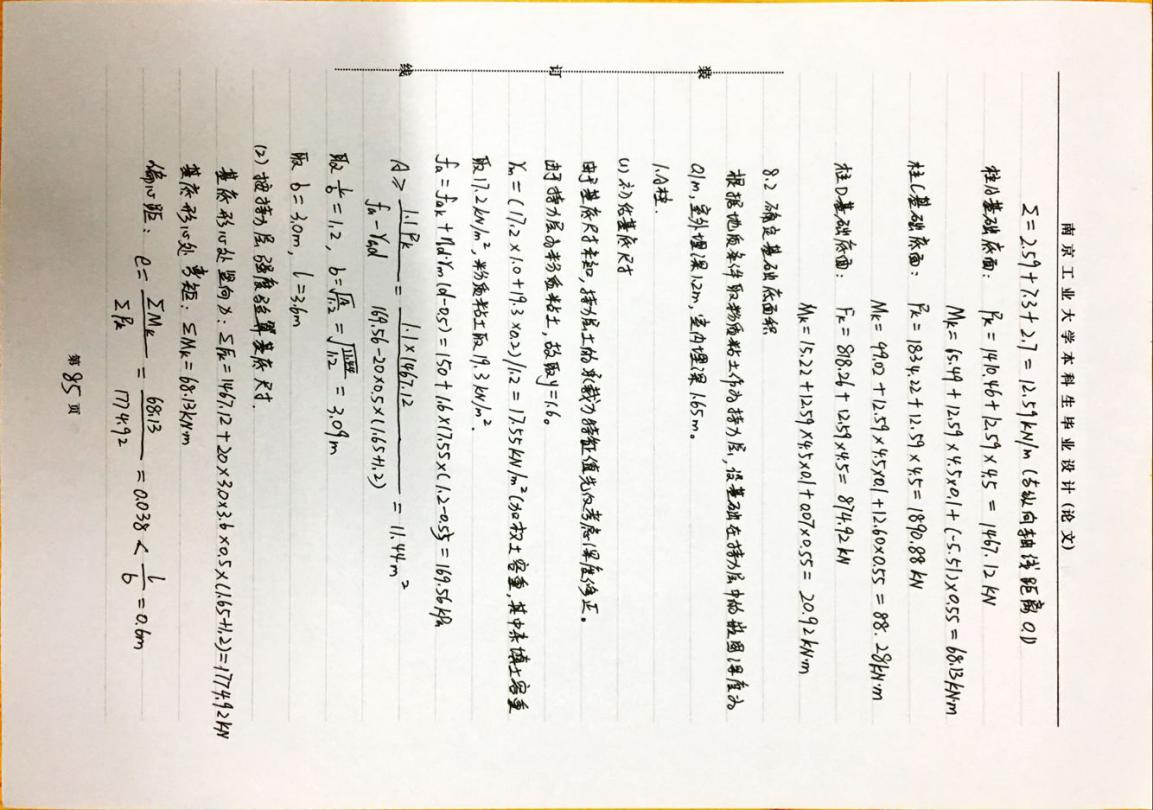 南京工业大学本科生毕业设计(论文)
Σ=2.59+7.3+2.7=12.59kN/m(与纵向轴线距离0.1)
柱A基础底面: Fk=1410.46+12.59×4.5=1467.12kN
Mk=15.49+12.59×4.5×0.1+(-5.51)×0.55=68.13kN·m
柱C基础底面: Fk=1834.22+12.59×4.5=1890.88kN
Mk=99.02+12.59×4.5×0.1+12.60×0.55=88.28kN·m
柱D基础底面: Fk=818.26+12.59×4.5=874.92kN
Mk=15.22+12.59×4.5×0.1+0.07×0.55=20.92kN·m
8.2 确定基础底面积
根据地质条件取粉质粘土作为持力层,设基础在持力层中的嵌固深度为
0.1m,室外埋深1.2m,室内埋深1.65m。
1.A柱.
(1)初估基底尺寸
由于基底尺寸未知,持力层土的承载力特征值先仅考虑深度修正。
由于持力层为粉质粘土,故取η=1.6。
γm=(17.2×1.0+19.3×0.2)/1.2=17.55kN/m²(加权土容重,其中杂填土容重
取17.2kN/m²,粉质粘土取19.3kN/m².
fa=fak+ηd·γm(d-0.5)=150+1.6×17.55×(1.2-0.5)=169.56kPa
A≥1.1Fk/(fa-γGd)=1.1×1467.12/(169.56-20×0.5×(1.65+1.2))=11.44m²
取l/b=1.2,b=√(A/1.2)=√(11.44/1.2)=3.09m
取b=3.0m,l=3.6m
(2)按持力层强度验算基底尺寸.
基底形心处竖向力:ΣFk=1467.12+20×3.0×3.6×0.5×(1.65+1.2)=1774.92kN
基底形心处弯矩:ΣMk=68.13kN·m
偏心距: e=ΣMk/ΣFk=68.13/1774.92=0.038<l/6=0.6m
第85页
装
订
线